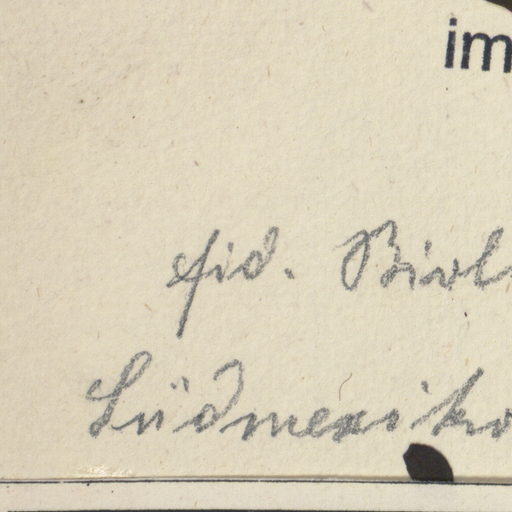 im
fid. Biol
Südmexiko